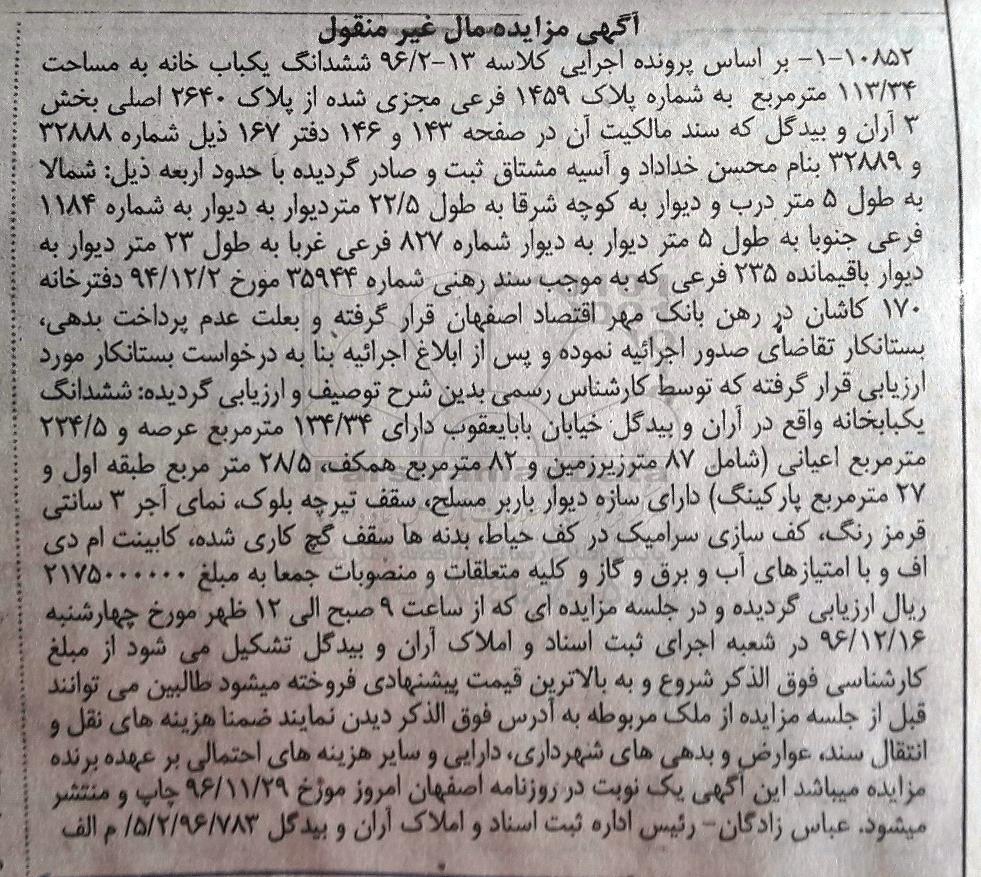 آگهی مزایده مال غیر منقول
۱۰۸۵۲-۱-۱- بر اساس پرونده اجرایی کلاسه ۱۳-۹۶/۲ ششدانگ یکباب خانه به مساحت
۱۱۳/۳۴ مترمربع به شماره پلاک ۱۴۵۹ فرعی مجزی شده از پلاک ۲۶۴۰ اصلی بخش
۳ آران و بیدگل که سند مالکیت آن در صفحه ۱۴۳ و ۱۴۶ دفتر ۱۶۷ ذیل شماره ۳۲۸۸۸
و ۳۲۸۸۹ بنام محسن خداداد و آسیه مشتاق ثبت و صادر گردیده با حدود اربعه ذیل: شمالا
به طول ۵ متر درب و دیوار به کوچه شرقا به طول ۲۲/۵ متردیوار به دیوار به شماره ۱۱۸۴
فرعی جنوبا به طول ۵ متر دیوار به دیوار شماره ۸۲۷ فرعی غربا به طول ۲۳ متر دیوار به
دیوار باقیمانده ۲۳۵ فرعی که به موجب سند رهنی شماره ۳۵۹۴۴ مورخ ۹۴/۱۲/۲ دفترخانه
۱۷۰ کاشان در رهن بانک مهر اقتصاد اصفهان قرار گرفته و بعلت عدم پرداخت بدهی،
بستانکار تقاضای صدور اجرائیه نموده و پس از ابلاغ اجرائیه بنا به درخواست بستانکار مورد
ارزیابی قرار گرفته که توسط کارشناس رسمی بدین شرح توصیف و ارزیابی گردیده: ششدانگ
یکبابخانه واقع در آران و بیدگل خیابان بابایعقوب دارای ۱۳۴/۳۴ مترمربع عرصه و ۲۲۴/۵
مترمربع اعیانی (شامل ۸۷ مترزیرزمین و ۸۲ مترمربع همکف، ۲۸/۵ متر مربع طبقه اول و
۲۷ مترمربع پارکینگ) دارای سازه دیوار باربر مسلح، سقف تیرچه بلوک، نمای آجر ۳ سانتی
قرمز رنگ، کف سازی سرامیک در کف حیاط، بدنه ها سقف گچ کاری شده، کابینت ام دی
اف و با امتیازهای آب و برق و گاز و کلیه متعلقات و منصوبات جمعا به مبلغ ۲۱۷۵۰۰۰۰۰۰
ریال ارزیابی گردیده و در جلسه مزایده ای که از ساعت ۹ صبح الی ۱۲ ظهر مورخ چهارشنبه
۹۶/۱۲/۱۶ در شعبه اجرای ثبت اسناد و املاک آران و بیدگل تشکیل می شود از مبلغ
کارشناسی فوق الذکر شروع و به بالاترین قیمت پیشنهادی فروخته میشود طالبین می توانند
قبل از جلسه مزایده از ملک مربوطه به آدرس فوق الذکر دیدن نمایند ضمنا هزینه های نقل و
انتقال سند، عوارض و بدهی های شهرداری، دارایی و سایر هزینه های احتمالی بر عهده برنده
مزایده میباشد این آگهی یک نوبت در روزنامه اصفهان امروز مورخ ۹۶/۱۱/۲۹ چاپ و منتشر
میشود. عباس زادگان- رئیس اداره ثبت اسناد و املاک آران و بیدگل ۵/۲/۹۶/۷۸۳/ م الف